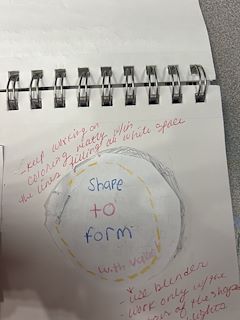 - Keep working on
coloring neatly w/in
the lines filling all white space
Shape
to
form
with value
* use blender
- work only w/the
of the shape